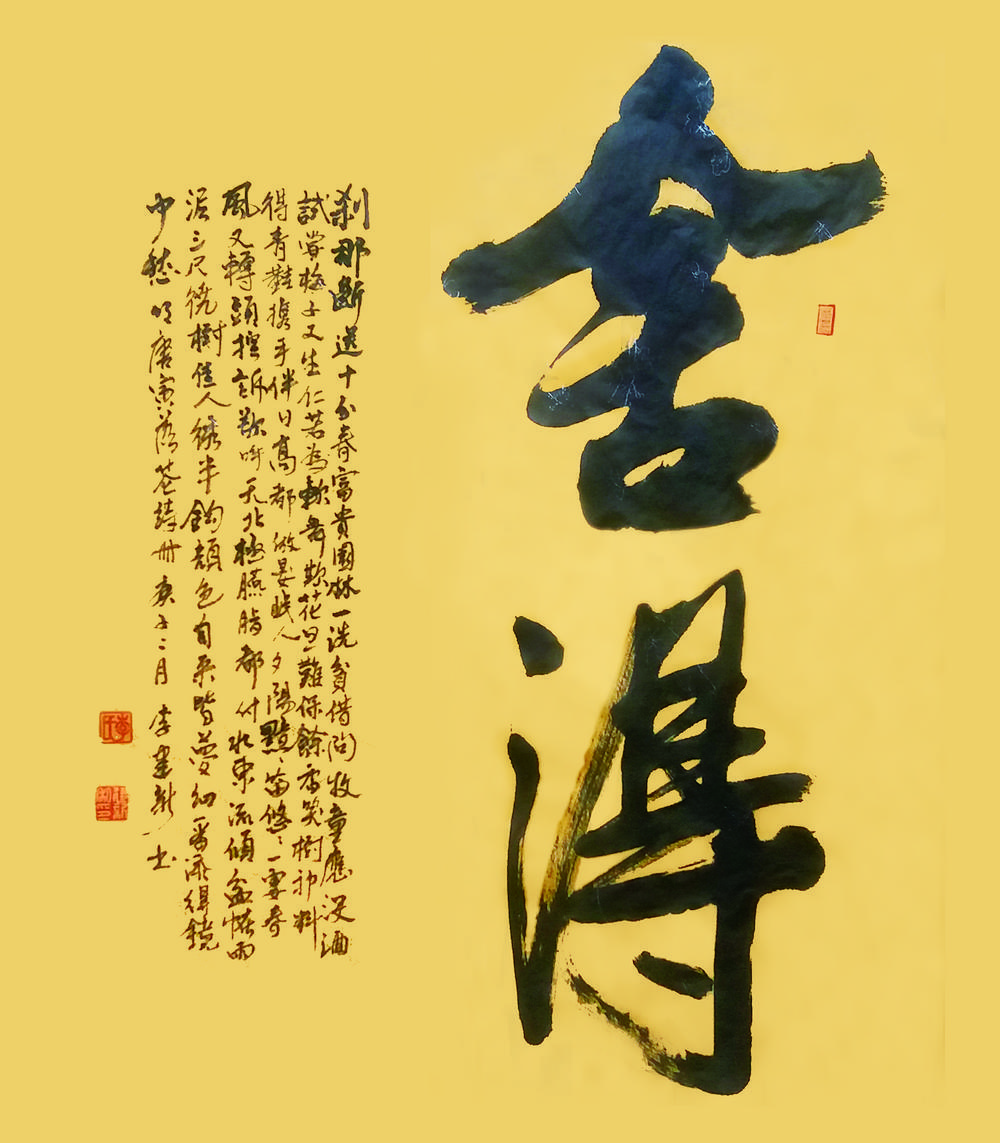 舍得
刹那斷送十分春富貴園林一洗貧借問牧童應沒酒
試嘗梅子又生仁若為軟舞欺花旦難保餘香笑樹神料
得青鞋携手伴日高都做晏眠人夕陽黯黯笛悠悠一霎春
風又轉頭控訴欲呼天北極臙脂都付水東流傾盆怪雨
泥三尺繞樹佳人繡半鈎顔色自來皆夢幻一番添得鏡
中愁明唐寅落花詩冊庚子二月李建新书